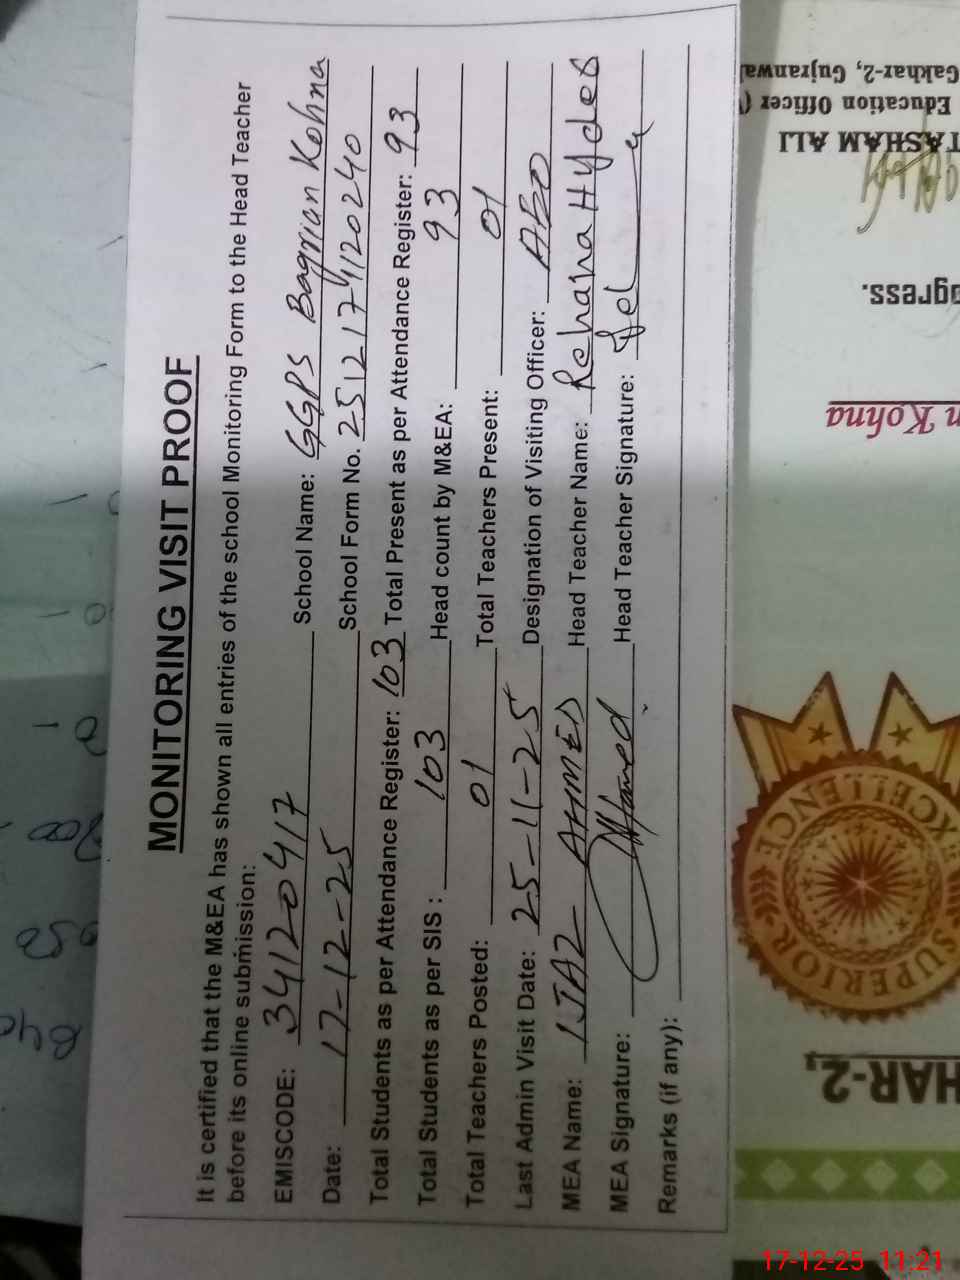 MONITORING VISIT PROOF
It is certified that the M&EA has shown all entries of the school Monitoring Form to the Head Teacher
before its online submission:
EMISCODE: 34120417 School Name: GGPS Bagrian Kohna
Date: 17-12-25 School Form No. 251217
Total Students as per Attendance Register: 103 Total Present as per Attendance Register: 93
Total Students as per SIS : 103 Head count by M&EA: 93
Total Teachers Posted: 01 Total Teachers Present: 01
Last Admin Visit Date: 25-11-25 Designation of Visiting Officer: AEO
MEA Name: IJAZ AHMED Head Teacher Name:
MEA Signature: Head Teacher Signature:
Remarks (if any):
TASHAM ALI
Education Officer (
Gakhar-2, Gujranwal
ogress.
n Kohna
SUPERIOR
EXCELLENCE
HAR-2,
17-12-25 11:21